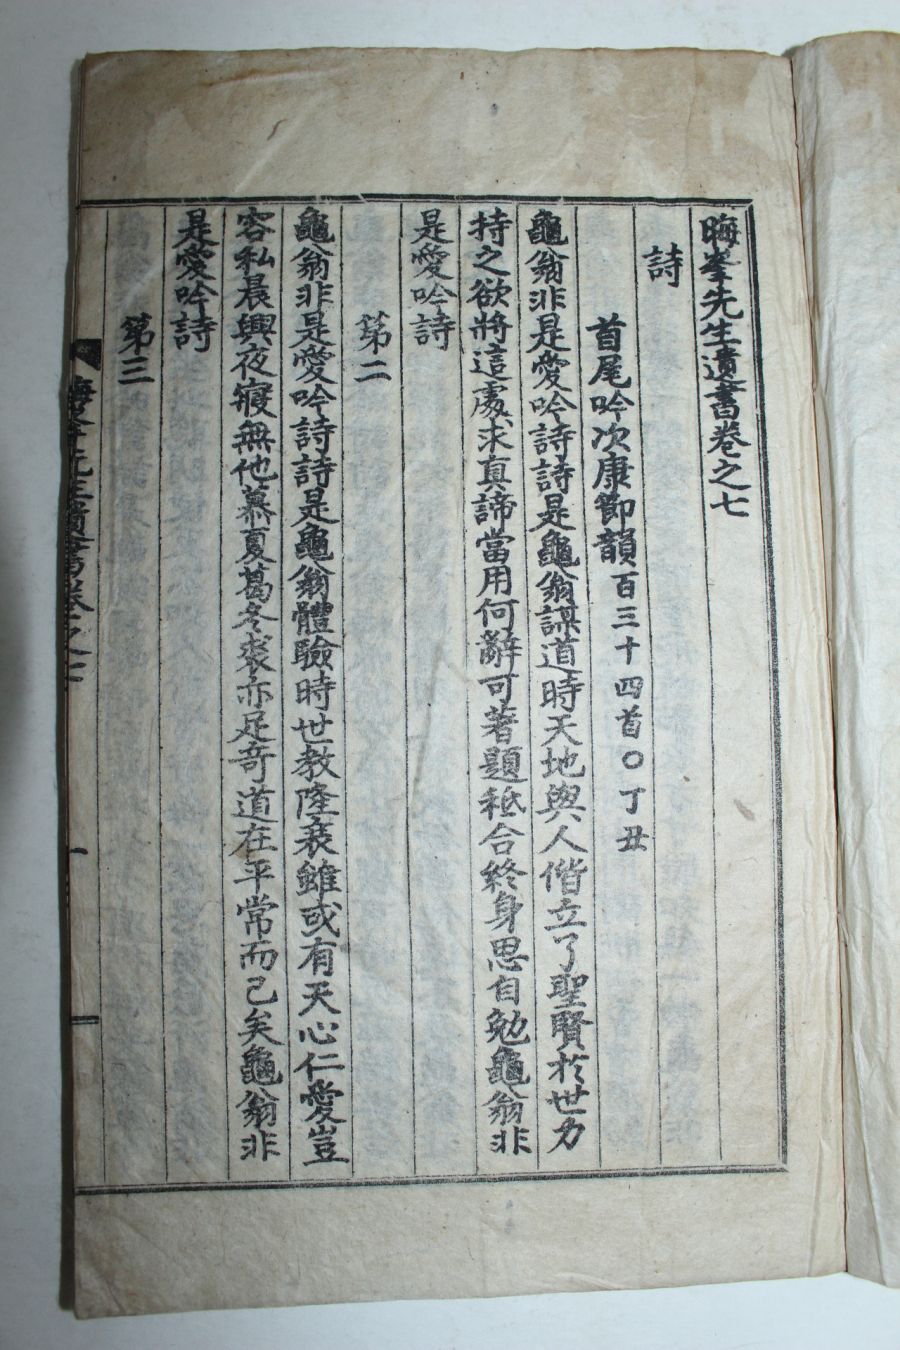 晦峯先生遺書卷之七
詩
首尾吟次康節韻百三十四首○丁丑
龜翁非是愛吟詩詩是龜翁謀道時天地與人偕立了聖賢於世力
持之欲將這處求真諦當用何辭可著題秪合終身思自勉龜翁非
是愛吟詩
第二
龜翁非是愛吟詩詩是龜翁體驗時世教隆衰雖或有天心仁愛豈
容私晨興夜寢無他慕夏葛冬裘亦足奇道在平常而已矣龜翁非
是愛吟詩
第三
晦峯先生遺書卷之七
一